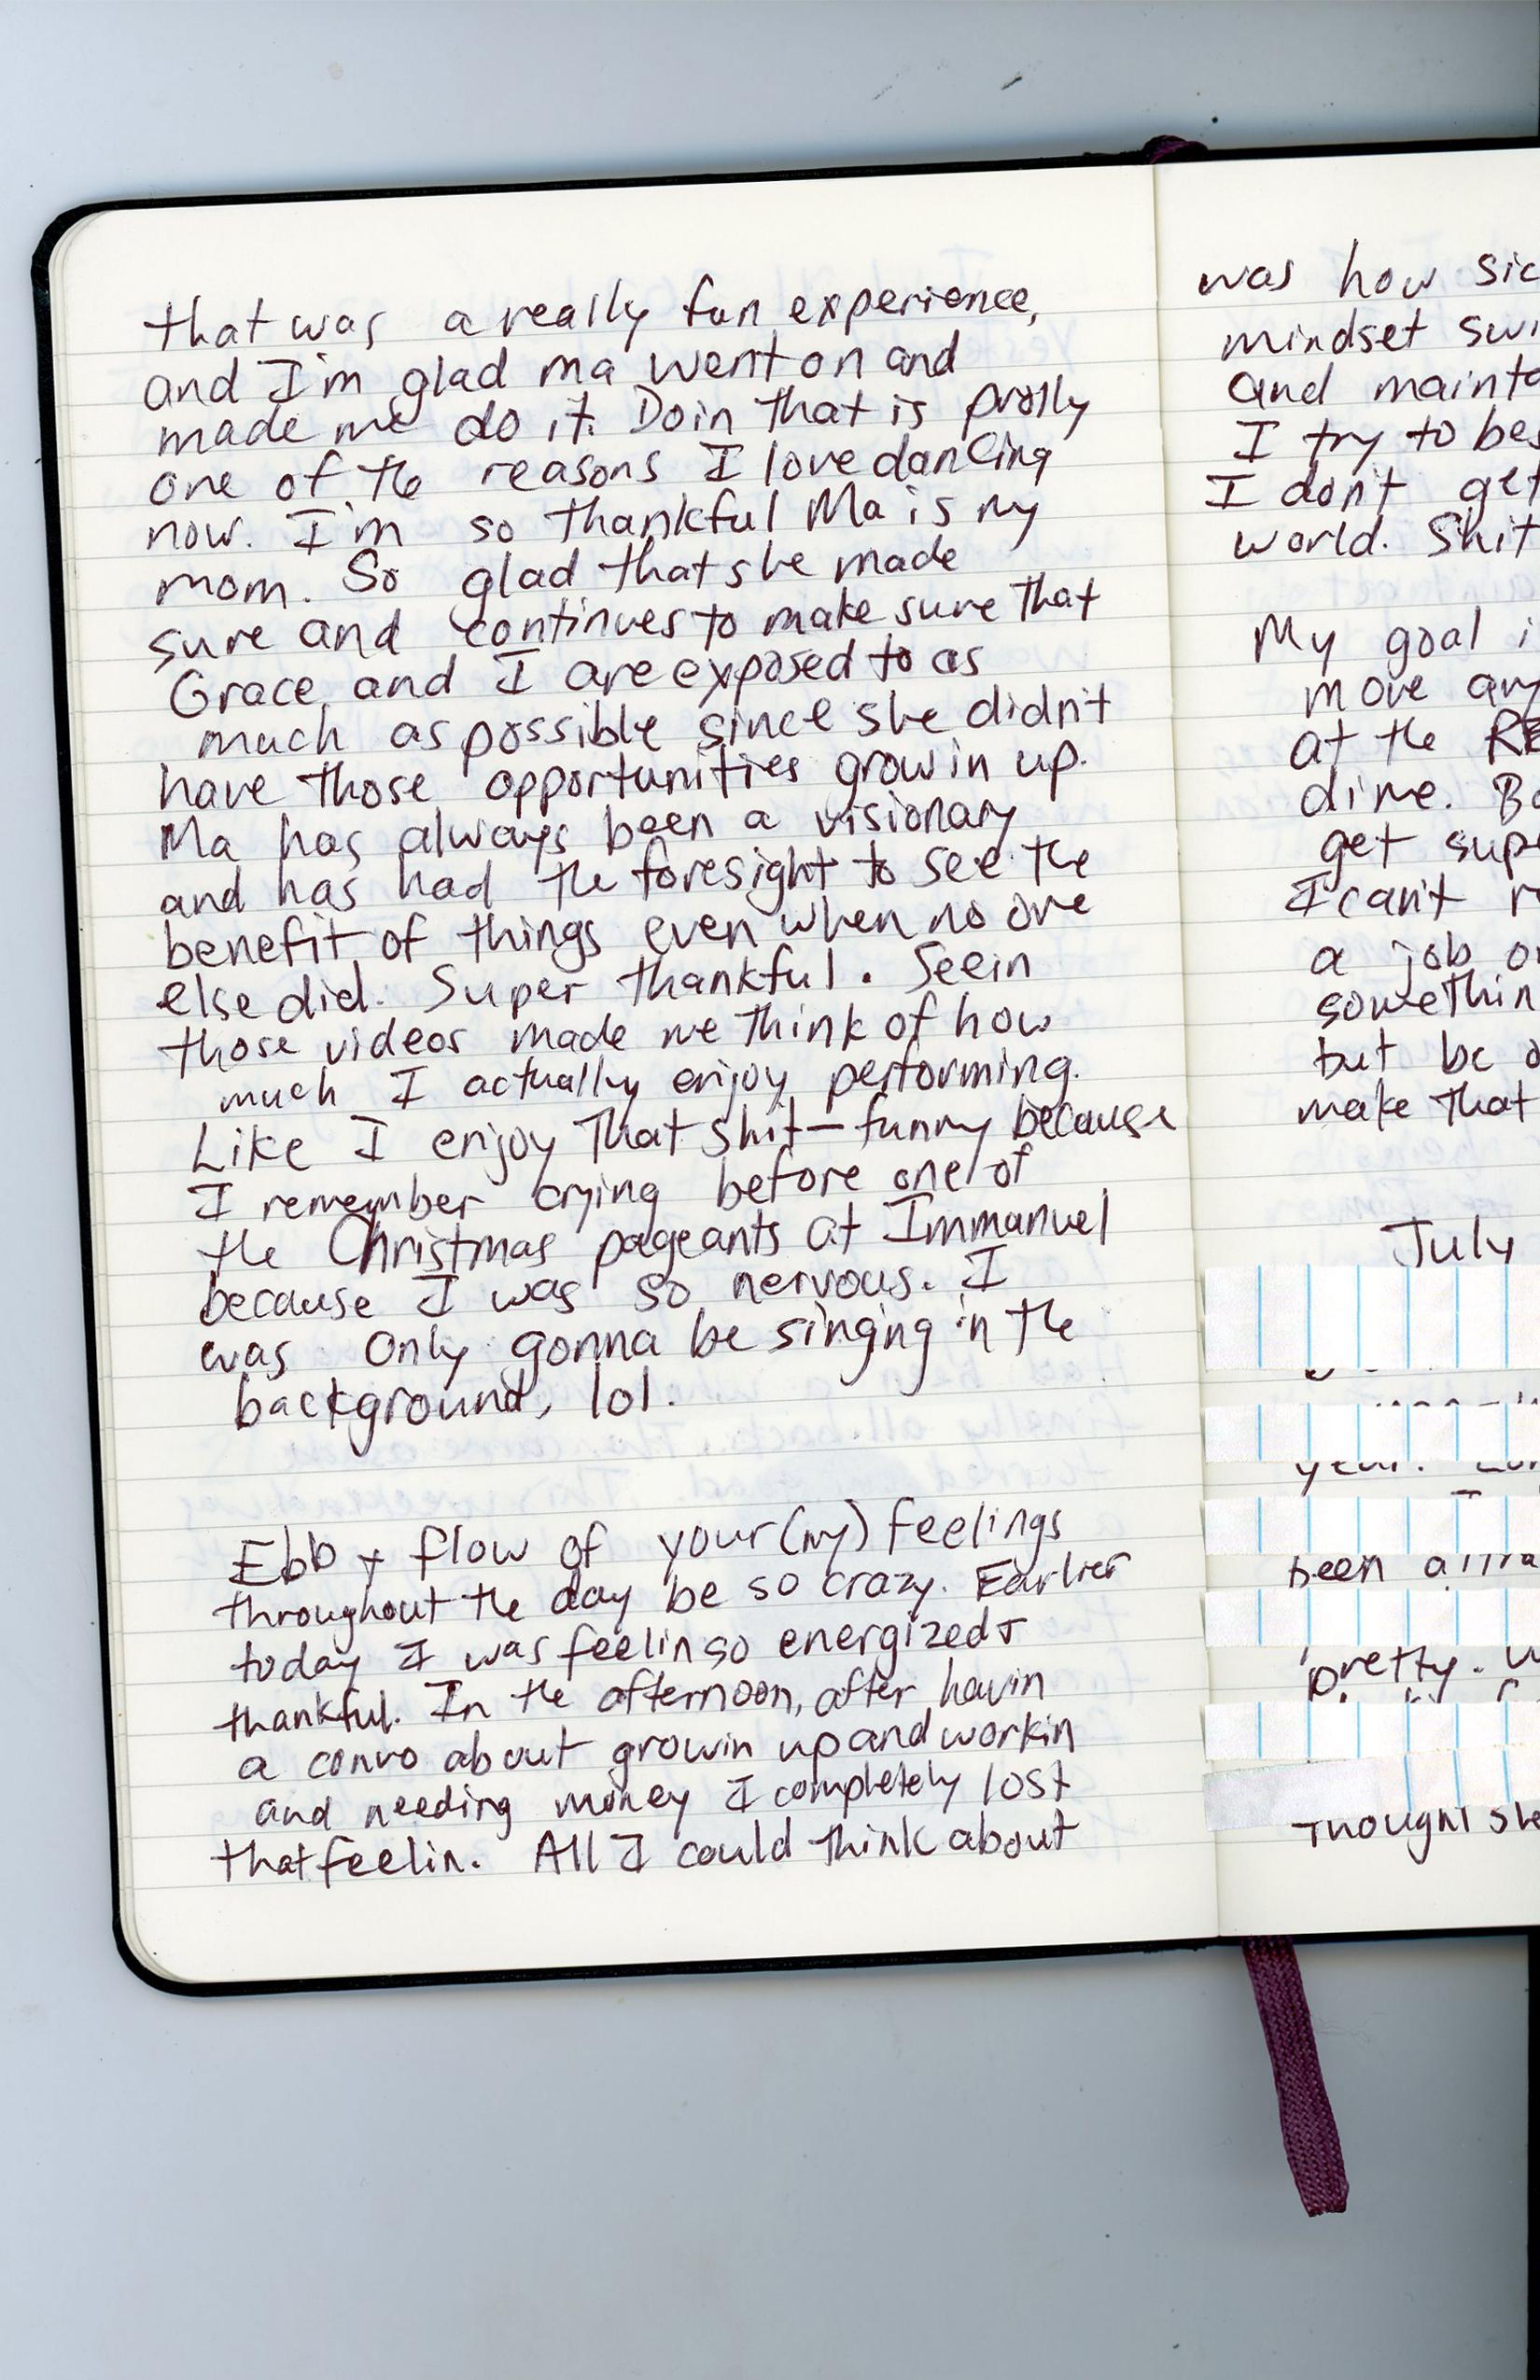 that was a really fun experience,
and I'm glad ma went on and
made me do it. Doin that is prolly
one of the reasons I love dancing
now. I'm so thankful Ma is my
mom. So glad that she made
sure and continues to make sure that
Grace and I are exposed to as
much as possible since she didn't
have those opportunities growin up.
Ma has always been a visionary
and has had the foresight to see the
benefit of things even when no one
else did. Super thankful. Seein
those videos made me think of how
much I actually enjoy performing.
Like I enjoy that shit - funny because
I remember crying before one of
the Christmas pageants at Immanuel
because I was so nervous. I
was only gonna be singing in the
background, lol.
Ebb + flow of your (my) feelings
throughout the day be so crazy. Earlier
today I was feelin so energized +
thankful. In the afternoon, after havin
a convo about growin up and workin
and needing money I completely lost
that feelin. All I could think about
was how sic
mindset swi
and mainta
I try to bes
I don't get
world. Shit
My goal i
move any
at the RE
dime. Bo
get supe
I can't r
a job or
somethin
but be a
make that
July
year.
been attra
pretty. W
thought she